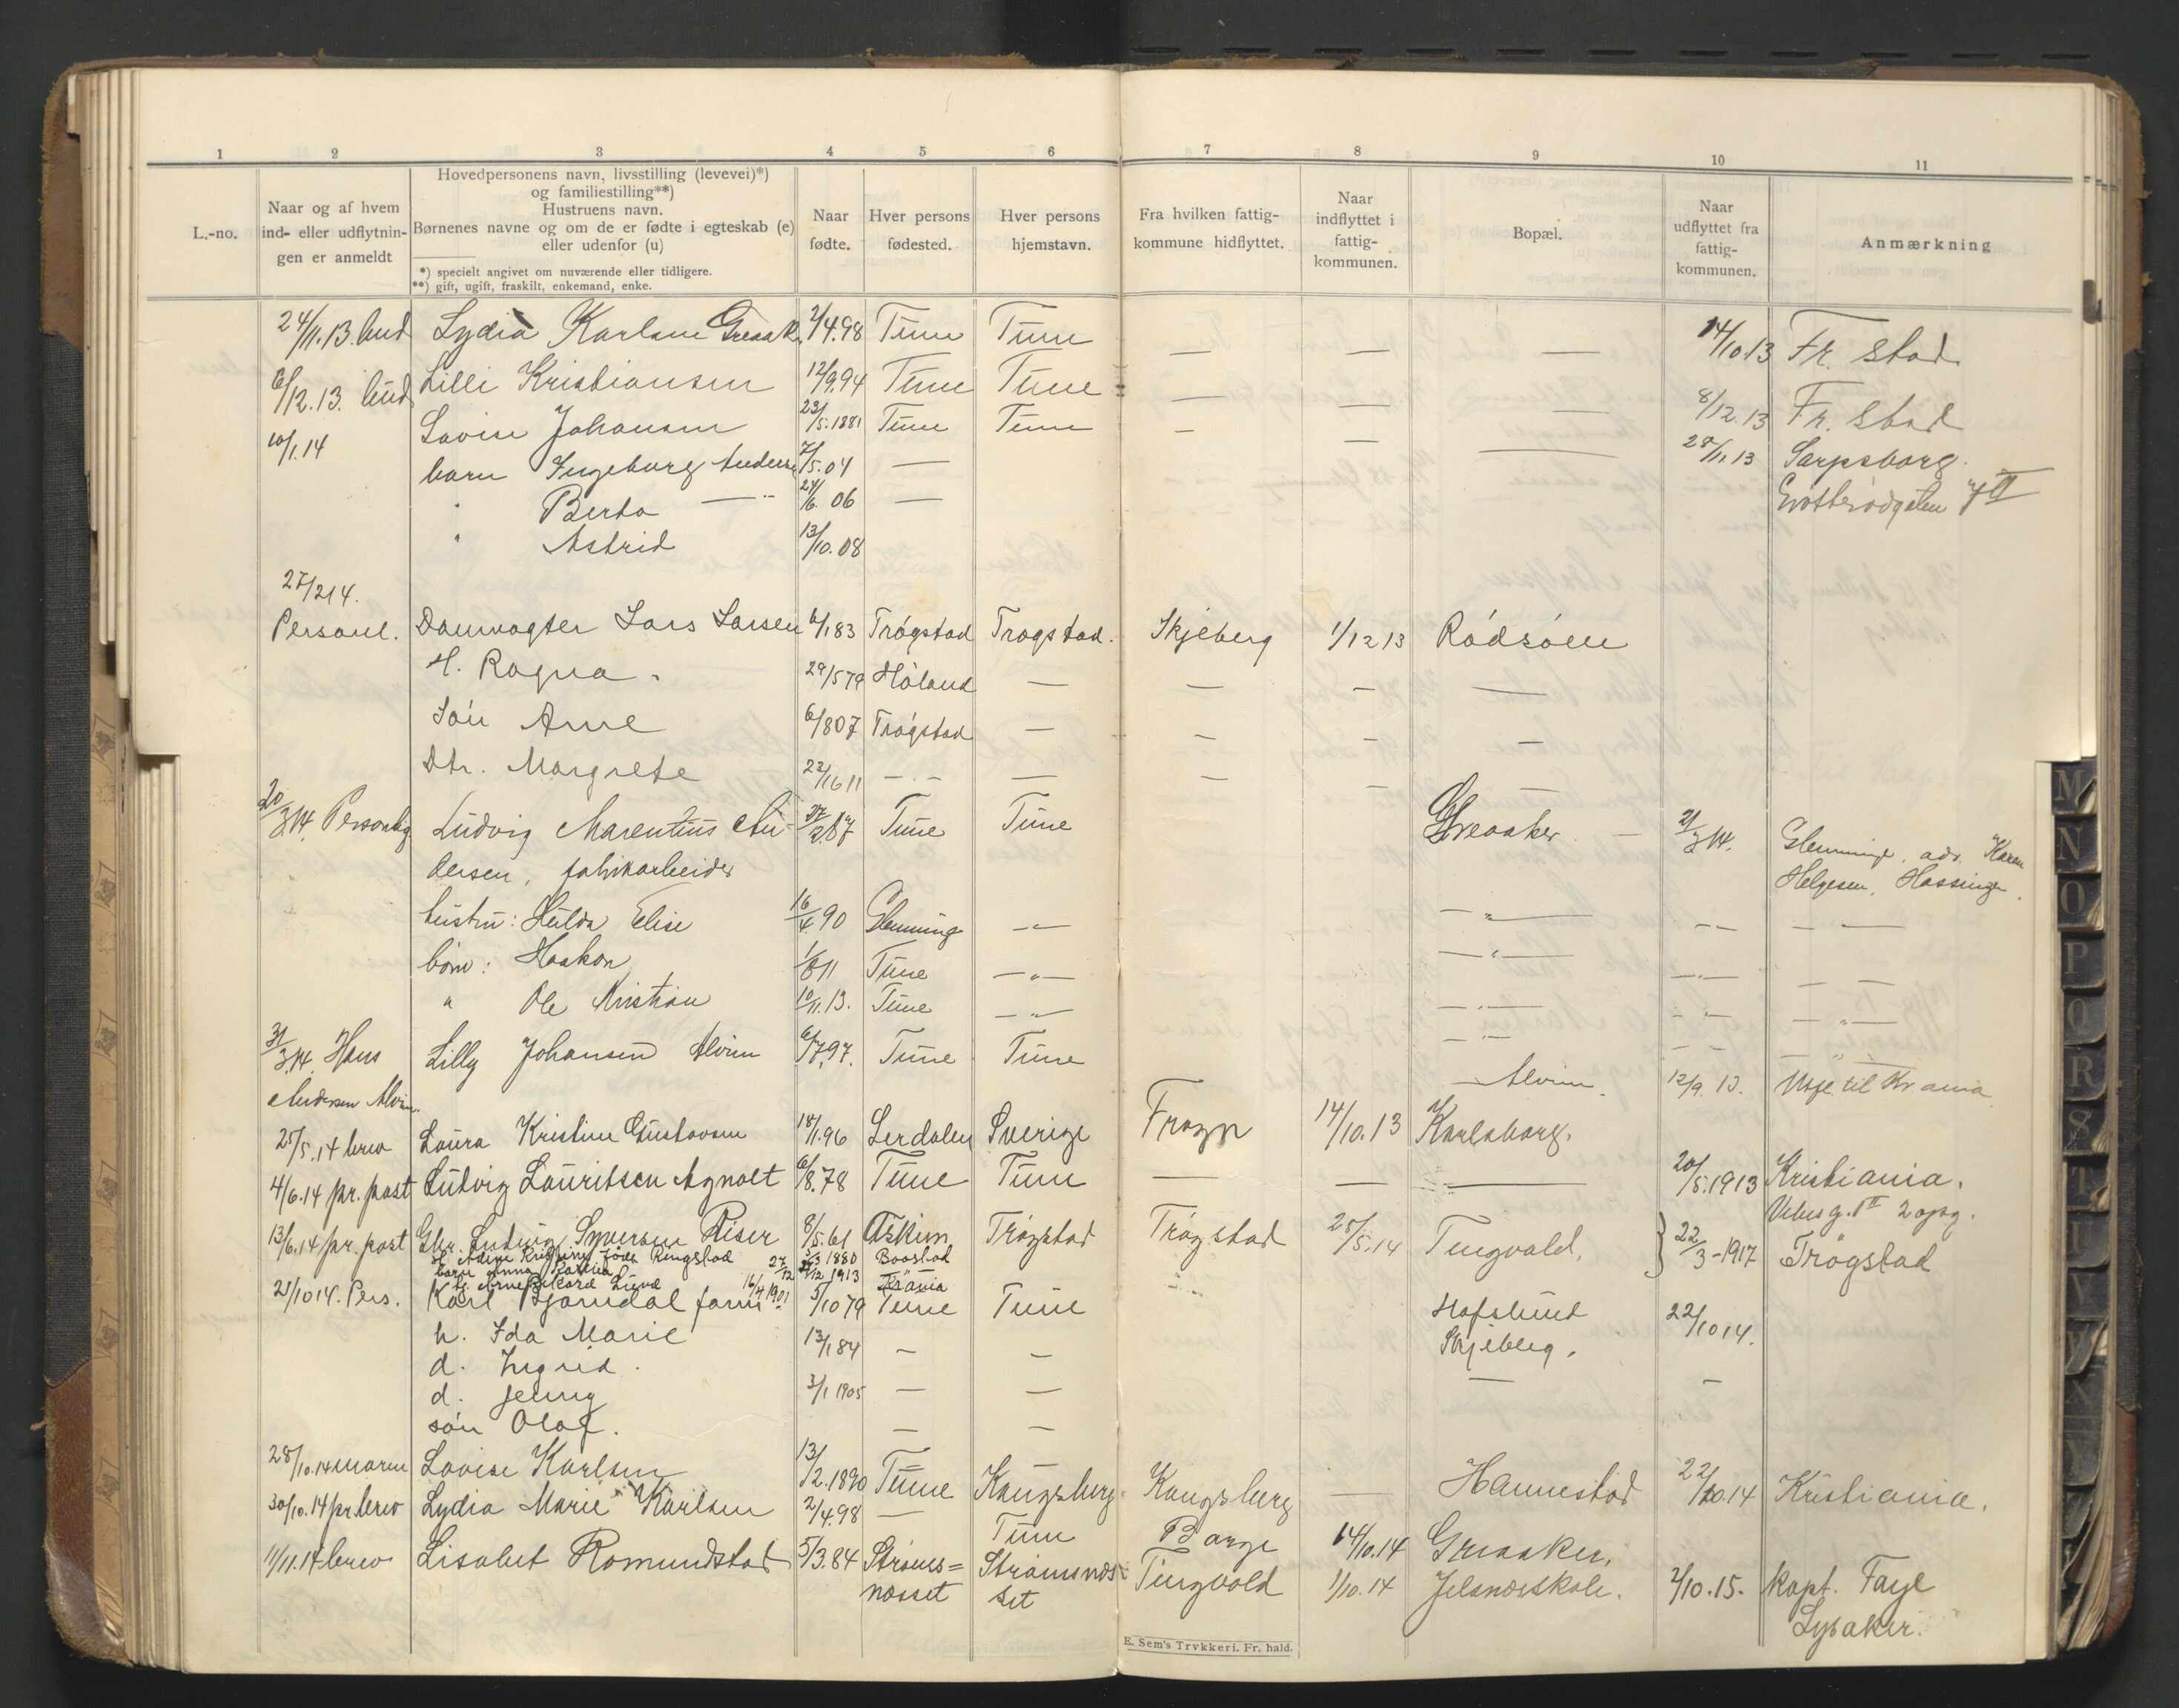 1 2 3 4 5 6 7 8 9 10 11
L.-no.
Naar og af hvem
ind- eller udflytnin-
gen er anmeldt
Hovedpersonens navn, livsstilling (levevei)*)
og familiestilling**)
Hustruens navn.
Børnenes navne og om de er fødte i egteskab (e)
eller udenfor (u)
*) specielt angivet om nuværende eller tidligere.
**) gift, ugift, fraskilt, enkemand, enke.
Naar
fødte.
Hver persons
fødested.
Hver persons
hjemstavn.
Fra hvilken fattig-
kommune hidflyttet.
Naar
indflyttet i
fattig-
kommunen.
Bopæl.
Naar
udflyttet fra
fattig-
kommunen.
Anmærkning
24/11.13. bud Lydia Karlsen Greaak. 2/4.98 Tune Tune — — — 14/10.13 Fr. stad
6/12.13. bud Lilli Kristiansen 12/9.94 Tune Tune — — — 8/12.13 Fr. stad
10/1.14 Lovise Johansen 23/5.1881 Tune Tune — — — 28/11.13 Sarpsborg.
barn Ingeborg 7/5.04 —
" Berta — " 24/6.06 —
" Astrid 13/10.08
27/2 14.
Personl. Damvagter Lars Larsen 6/1 83 Trøgstad Trøgstad. Skjeberg 1/12 13 Rødsøen
H. Ragna. 29/5 79 Høland — — — —
Søn Arne 6/8 07 Trøgstad — — — —
Dtr. Margrete — — — — — —
20/3 14. Personlig Ludvig Marentius An- 27/2.87 Tune Tune Greaaker — 21/3 14. Glemminge, adr. Karen
dersen, fabrikarbeider Helgesen, Hassinge.
hustru: Hulda Elise 16/4.90 Glemminge — " — — " — — — — —
børn: Haakon 1/8 11 Tune — " — — " — — — — —
" Ole Kristian 10/11.13. Tune — " — — " — — " — — " —
31/3.14. Hans Lilly Johansen Alvim 6/7.97. Tune Tune — Alvim. 12/9.13. til Kr.ania
Andersen Alvim.
25/5.14 brev Laura Kristine Gustavsen 18/11.96 Lerdalen Sverige Frogn 14/10.13 Karlsborg.
4/6.14 pr. post Ludvig Lauritsen Agnalt 6/8.78 Tune Tune — — — 20/5.1913 Kristiania.
Vibes g. 2 opg.
13/6.14 pr. post Gbr. Ludvig Syversen Riser 8/5.61 Askim Trøgstad Trøgstad 25/5.14 Tingvold, } 22/3-1917 Trøgstad
Ringstad 1880 Baastad
barn Anna 27/12 1913 Krania
16/4 1901
21/10 14. Pers. Karl Bjørndal 5/10 79 Tune Tune Hafslund 22/10 14.
h. Ida Marie 13/1 84 — — Skjeberg.
d. Ingrid. 3/1 1905 — — — —
d. Jenny — —
søn Olaf. —
28/10.14 Lovise Karlsen 13/2.1890 Tune Kongsberg. Kongsberg — Hannestad 22/10.14 Kristiania.
30/10.14 pr. brev Lydia Marie Karlsen 2/4.98 — Tune Borge 14/10.14 Greaaker.
11/11.14 brev Lisabet Romundstad 5/3.84 Strøms= Strømsnes Tingvold 1/10.14 2/10.15. kapt. Faye
næsset set Lysaker.
M N O P Q R S T U V
E. Sem's Trykkeri. Fr. hald.